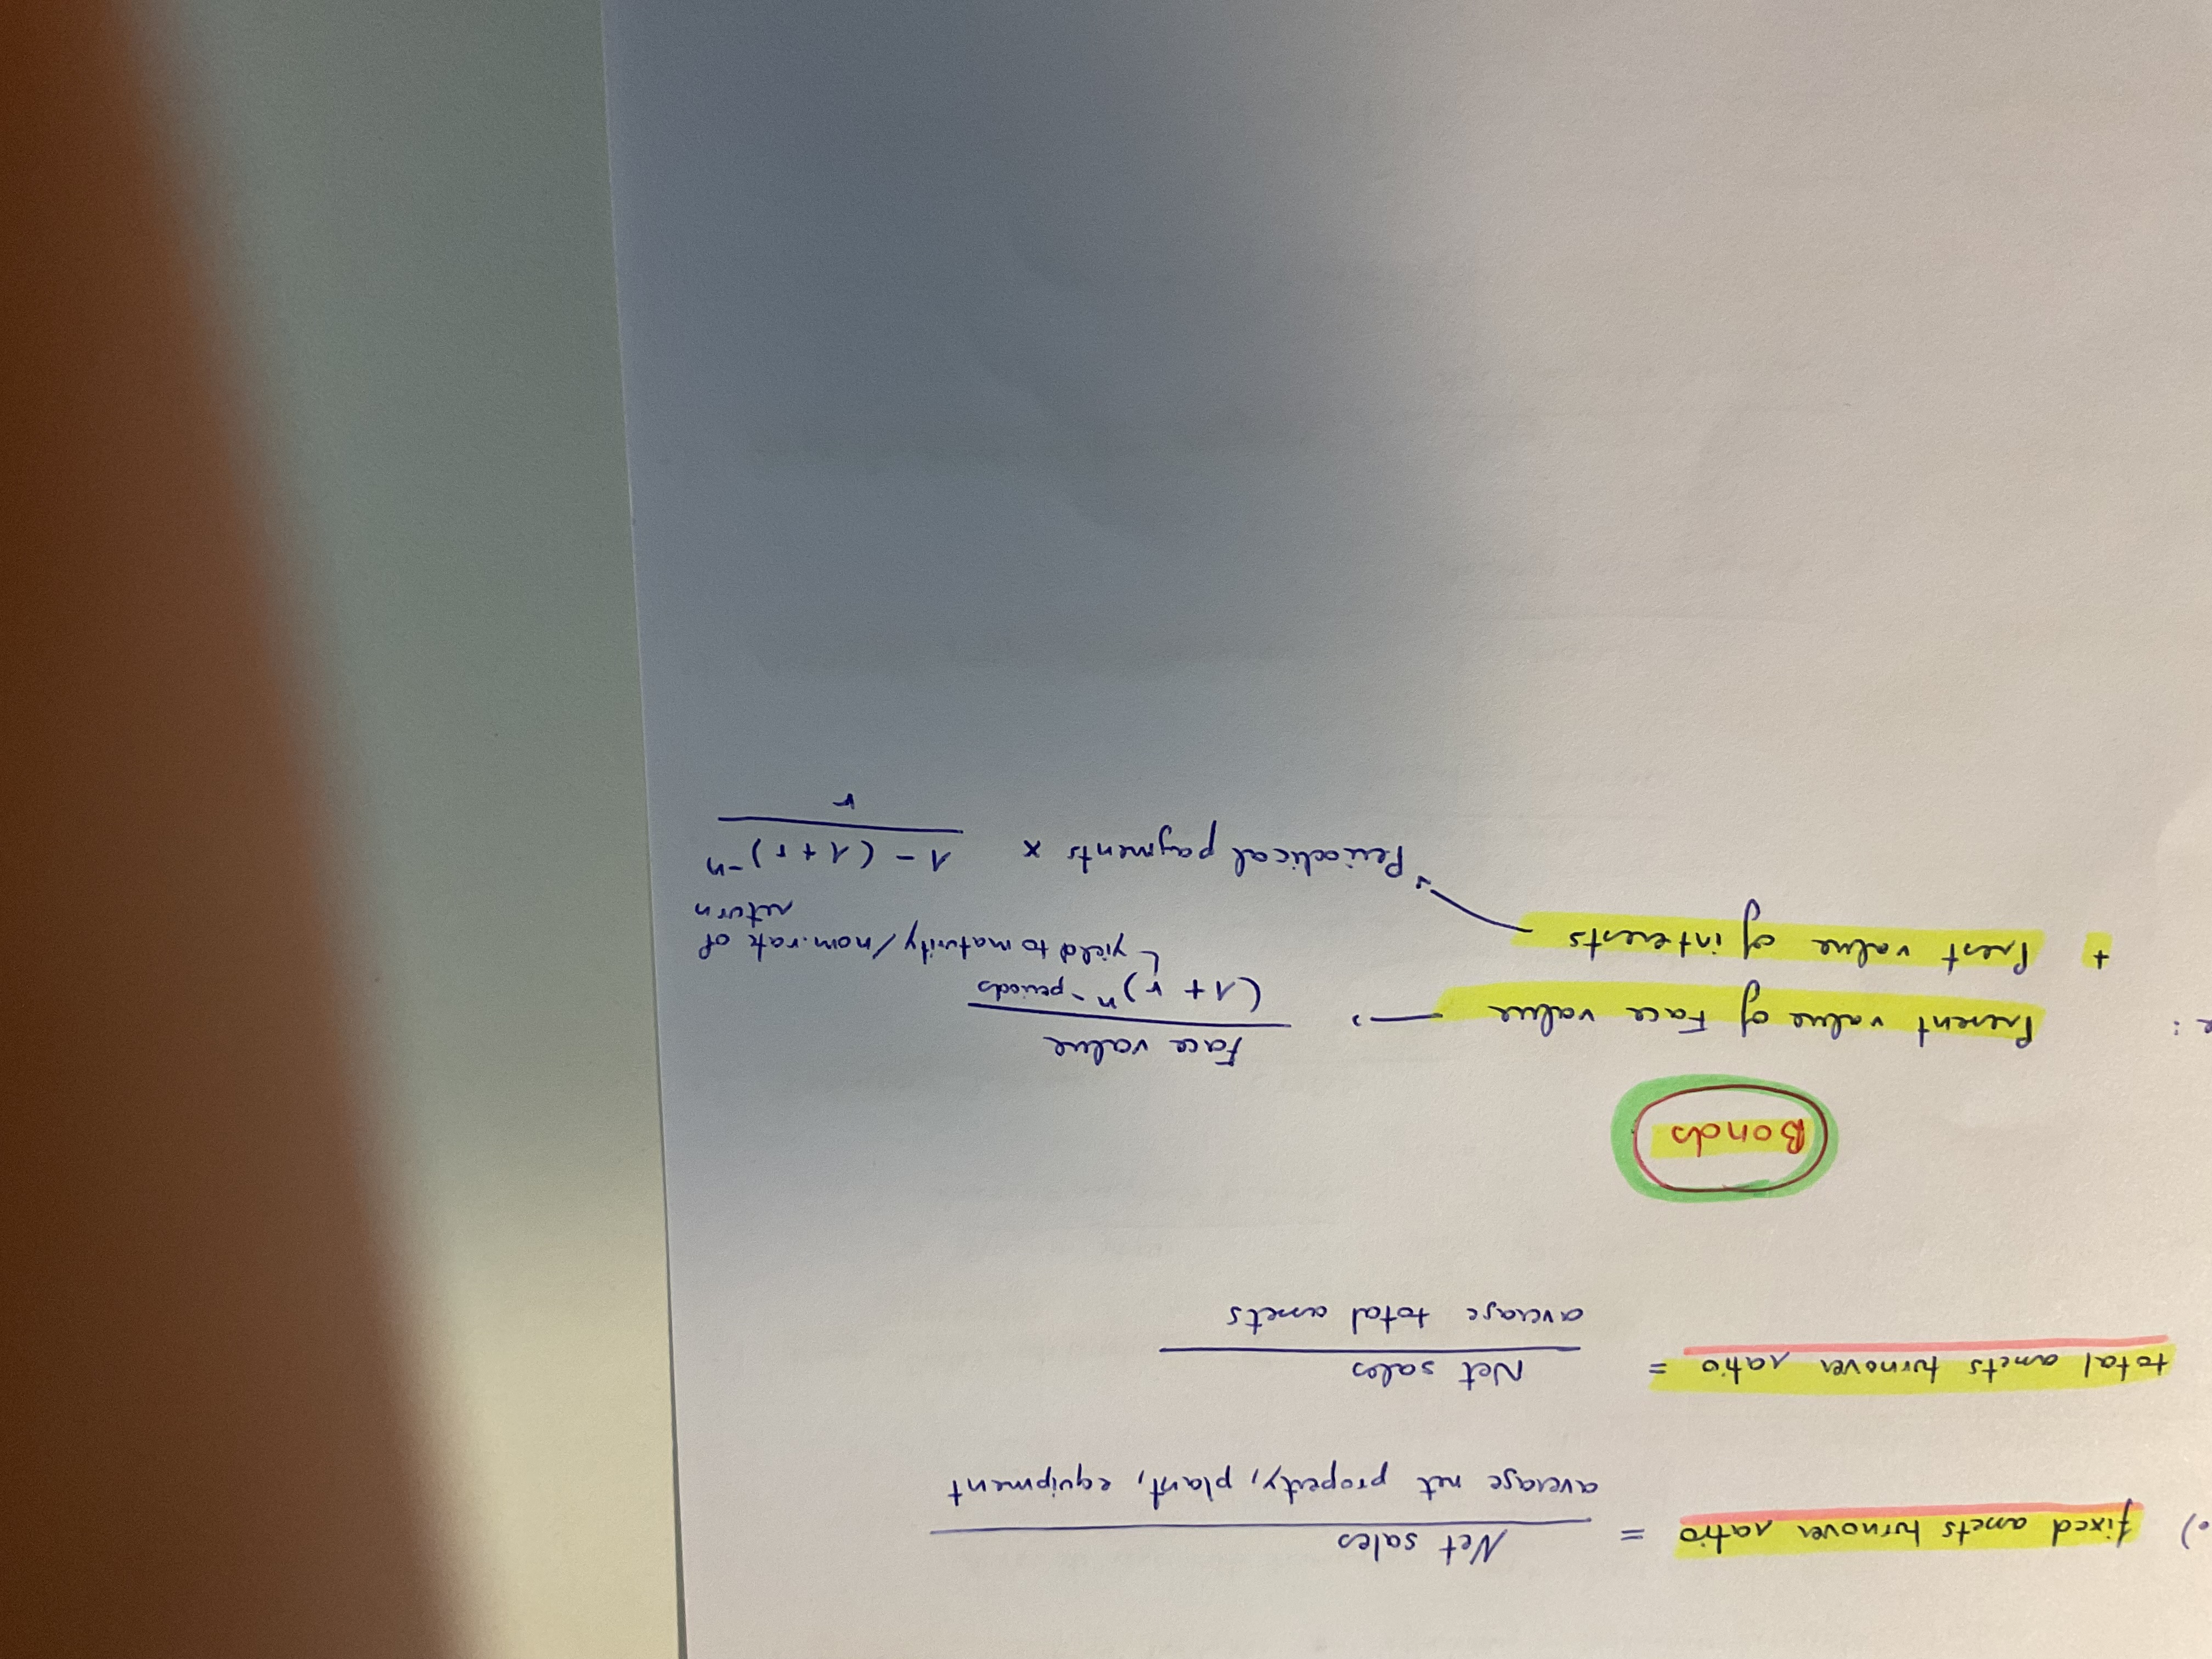 •) fixed assets turnover ratio = Net sales
average net property, plant, equipment
total assets turnover ratio = Net sales
average total assets
Bonds
e : Present value of Face value → Face value
(1 + r) n - periods
↳ yield to maturity / nom. rate of
return
+ Prest value of interests → Periodical payments x 1 - (1 + r) -n
r